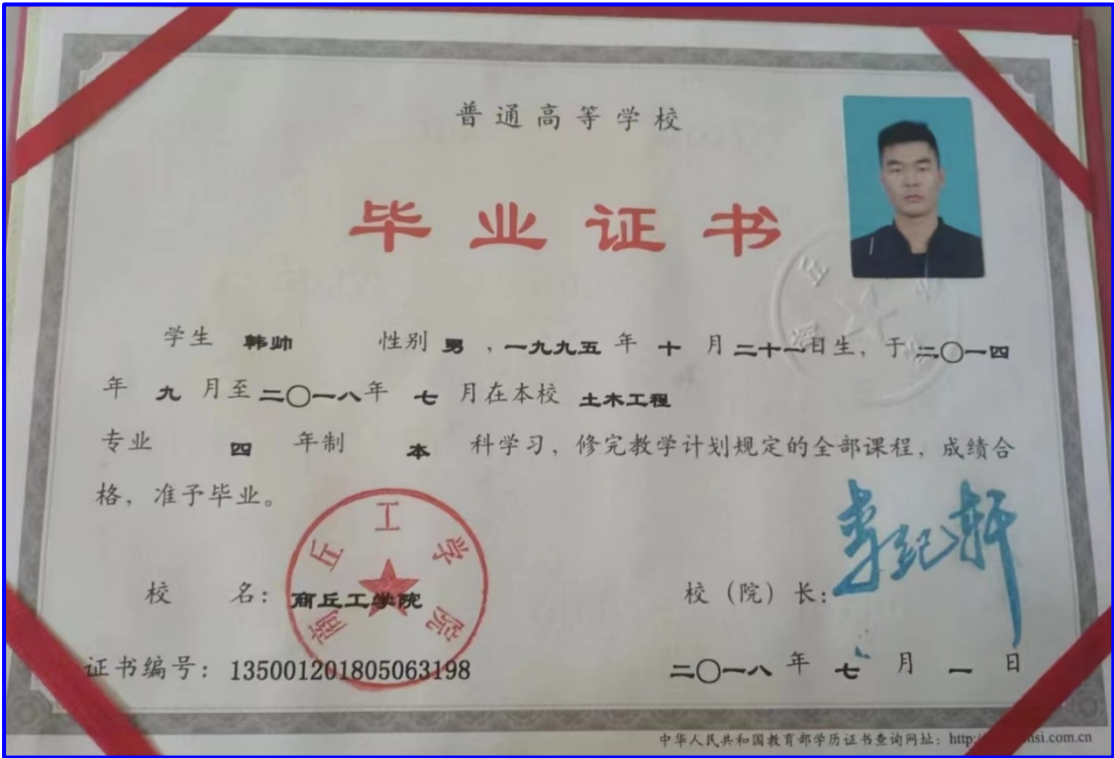 普通高等学校
毕业证书
学生 韩帅 性别 男 ,一九九五 年 十 月二十一日生, 于二〇一四
年 九 月至二〇一八年 七 月在本校 土木工程
专业 四 年制 本 科学习, 修完教学计划规定的全部课程, 成绩合
格, 准予毕业。
商丘工学院
校 名: 商丘工学院 校(院)长: 李纪轩
证书编号: 135001201805063198 二〇一八 年 七 月 一 日
中华人民共和国教育部学历证书查询网址: http si.com.cn